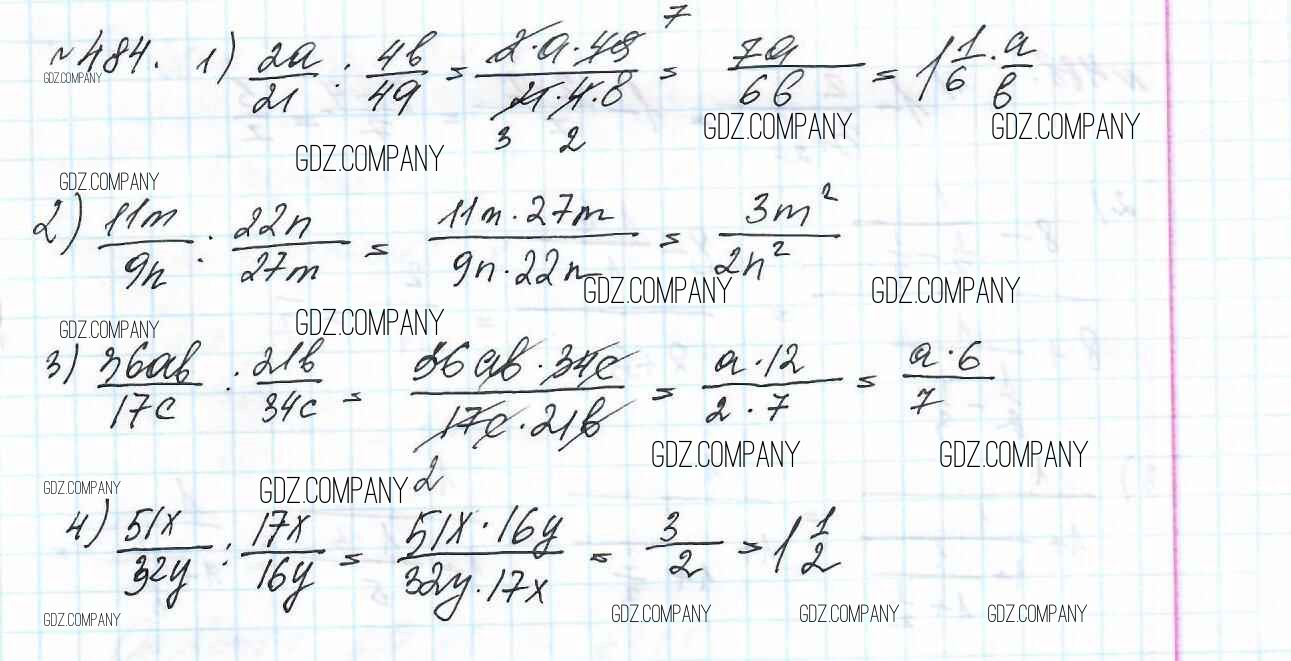 №484. 1) 2a/21 : 4b/49 = 2·a·49/21·4·b = 7a/6b = 1 1/6 · a/b
7
3 2
GDZ.COMPANY
GDZ.COMPANY GDZ.COMPANY
GDZ.COMPANY
GDZ.COMPANY
2) 11m/9n : 22n/27m = 11m·27m/9n·22n = 3m²/2n²
GDZ.COMPANY GDZ.COMPANY
GDZ.COMPANY GDZ.COMPANY
3) 36ab/17c : 21b/34c = 36ab·34c/17c·21b = a·12/2·7 = a·6/7
2
GDZ.COMPANY GDZ.COMPANY
GDZ.COMPANY GDZ.COMPANY
4) 51x/32y : 17x/16y = 51x·16y/32y·17x = 3/2 = 1 1/2
GDZ.COMPANY GDZ.COMPANY GDZ.COMPANY GDZ.COMPANY